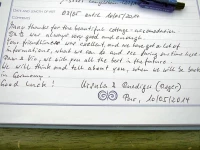 03/05 until 10/05/2014
Many thanks for the beautiful cottage - accomodation
was always very good and enough.
Your friendliness was excellent, and we have got a lot of
informations, what we can do and see during our time here
Dear & Vic, we wish you all the best in the future.
We will think and talk about you, when we will be back
in Germany.
Good luck! Ursula & Ruediger
10/05/2014